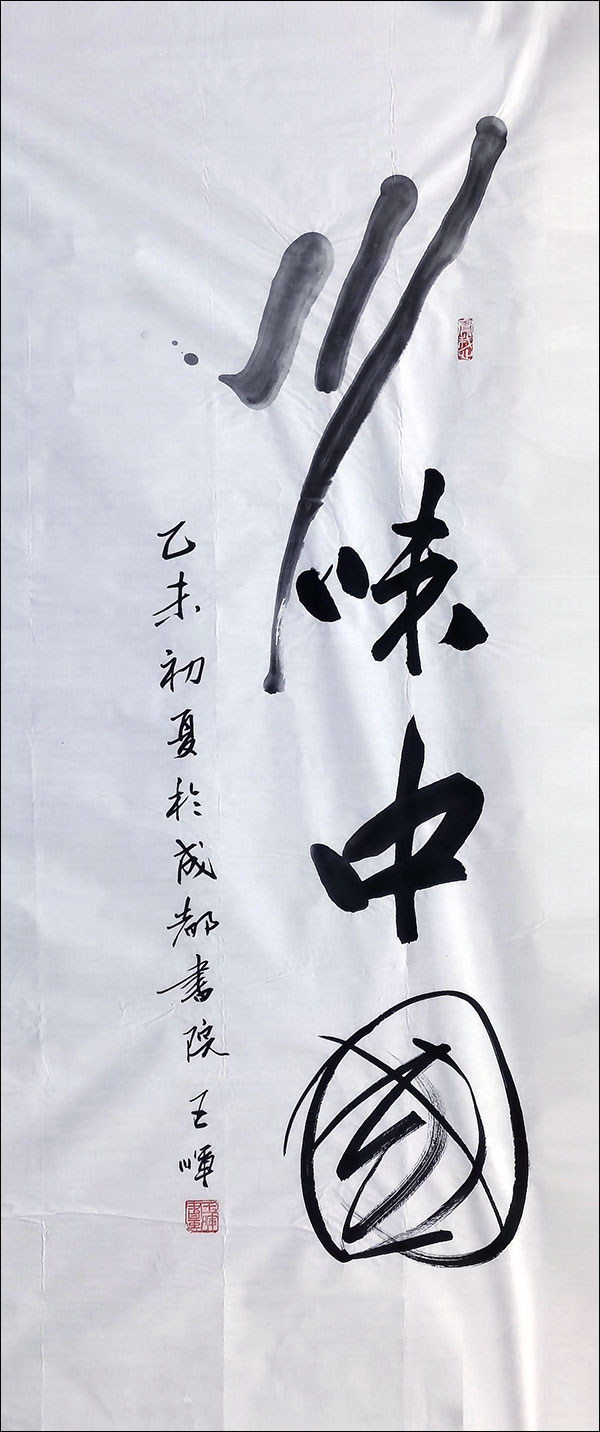 川味中國
乙未初夏於成都書院 王暉